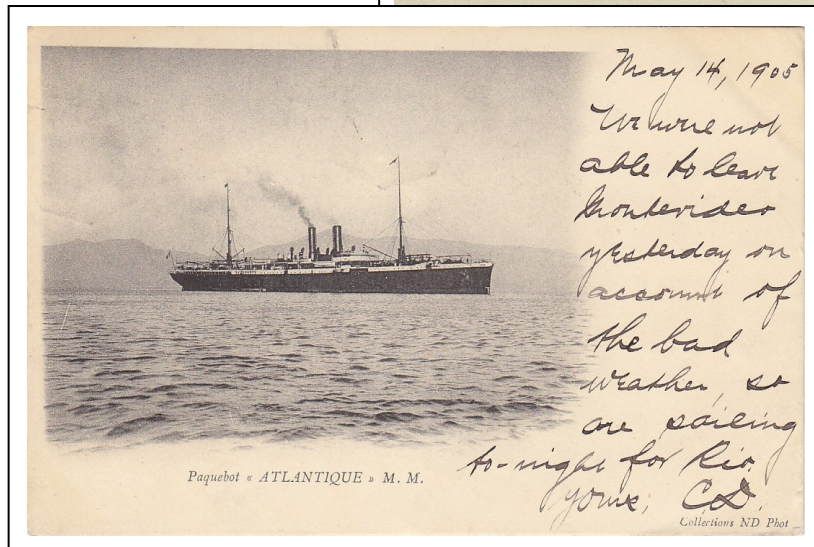 May 14, 1905
We were not
able to leave
Montevideo
yesterday on
account of
the bad
weather, so
are sailing
to-night for Rio.
Yours, CD.
Paquebot « ATLANTIQUE » M. M.
Collections ND Phot